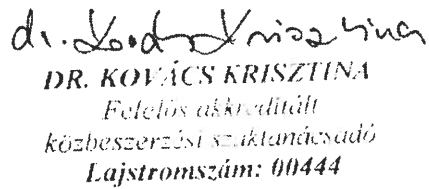 dr. Kovács Krisztina
DR. KOVÁCS KRISZTINA
Felelős akkreditált
közbeszerzési szaktanácsadó
Lajstromszám: 00444